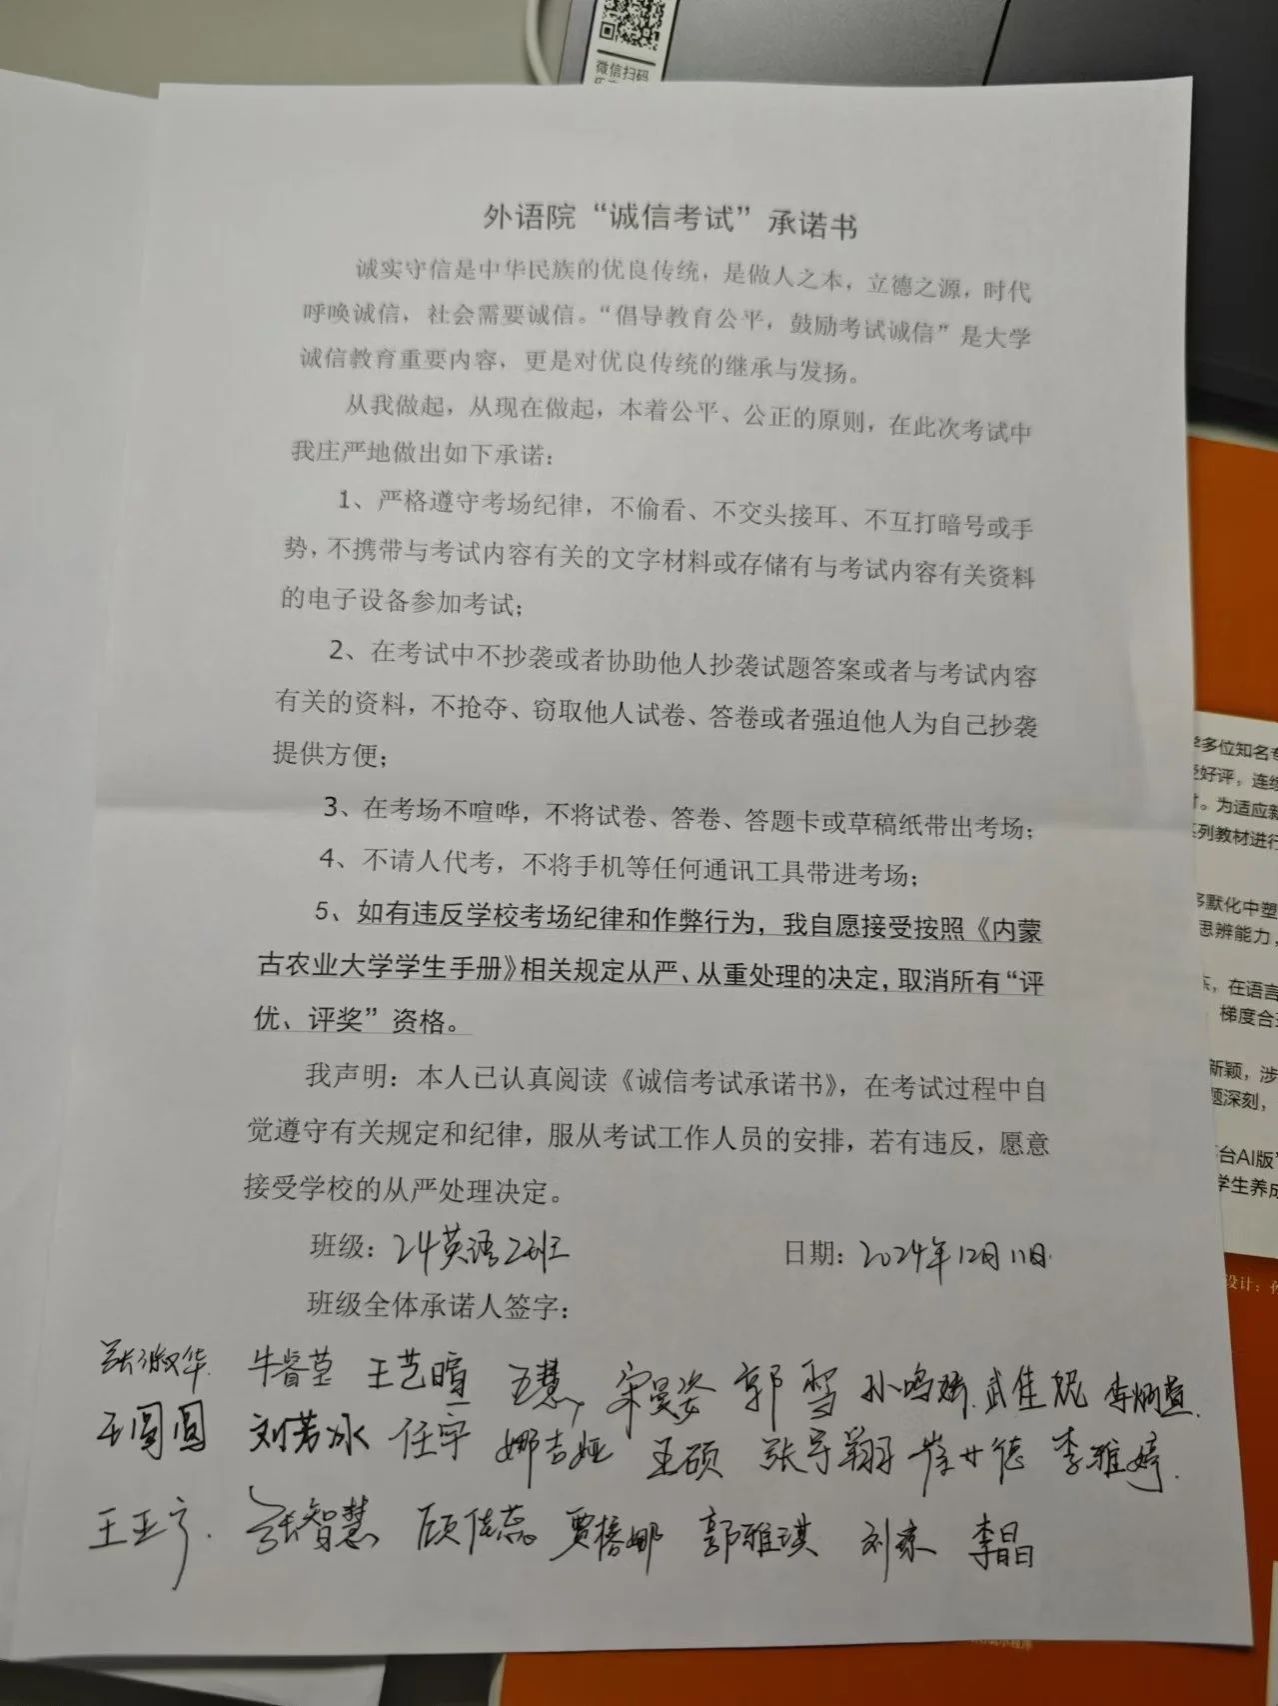 微信扫码
外语院“诚信考试”承诺书
诚实守信是中华民族的优良传统，是做人之本，立德之源，时代
呼唤诚信，社会需要诚信。“倡导教育公平，鼓励考试诚信”是大学
诚信教育重要内容，更是对优良传统的继承与发扬。
从我做起，从现在做起，本着公平、公正的原则，在此次考试中
我庄严地做出如下承诺：
1、严格遵守考场纪律，不偷看、不交头接耳、不互打暗号或手
势，不携带与考试内容有关的文字材料或存储有与考试内容有关资料
的电子设备参加考试；
2、在考试中不抄袭或者协助他人抄袭试题答案或者与考试内容
有关的资料，不抢夺、窃取他人试卷、答卷或者强迫他人为自己抄袭
提供方便；
3、在考场不喧哗，不将试卷、答卷、答题卡或草稿纸带出考场；
4、不请人代考，不将手机等任何通讯工具带进考场；
5、如有违反学校考场纪律和作弊行为，我自愿接受按照《内蒙
古农业大学学生手册》相关规定从严、从重处理的决定，取消所有“评
优、评奖”资格。
我声明：本人已认真阅读《诚信考试承诺书》，在考试过程中自
觉遵守有关规定和纪律，服从考试工作人员的安排，若有违反，愿意
接受学校的从严处理决定。
班级：24英语2班 日期：2024年12月11日
班级全体承诺人签字：
张淑华 牛睿莹 王艺暄 王慧 宋曼姿 郭雪 孙鸣 武佳妮 李炳萱
王圆圆 刘芳冰 任宇 娜吉娅 王硕 张宇翔 李雅婷
王亚宁 张智慧 顾佳蕊 贾榕娜 郭雅琪 刘京 李晶
学多位知名专
受好评，连续
为适应新
系列教材进行
多默化中塑
思辨能力，
在语言
梯度合
新颖，涉
题深刻，
平台AI版
学生养成
设计：